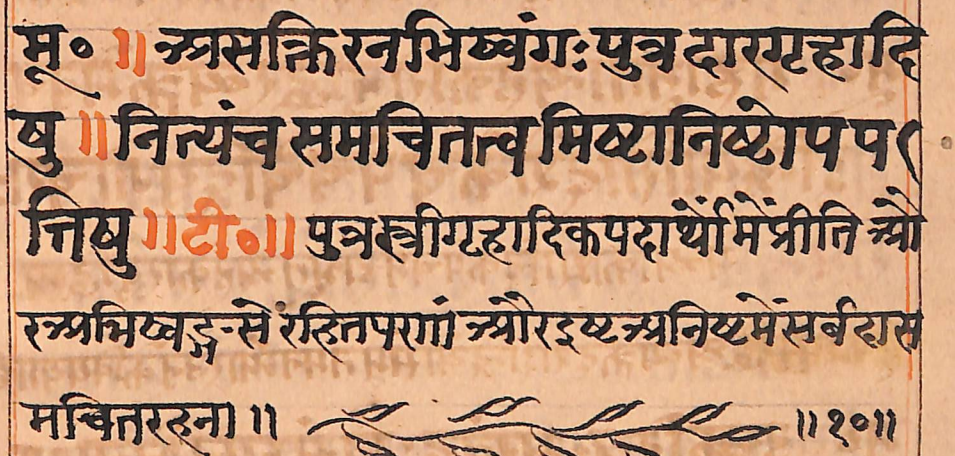 मू० ॥ असक्तिरनभिष्वंगः पुत्रदारगृहादि
षु ॥ नित्यंच समचितत्व मिष्टानिष्टोपप
त्तिषु ॥ टी० ॥ पुत्रस्त्रीगृहादिकपदार्थोंमेंप्रीति औ
रअभिष्वङ्ग-से रहित औरइष्टअनिष्टमेंसर्बदास
मचितरहना ॥ ॥१०॥